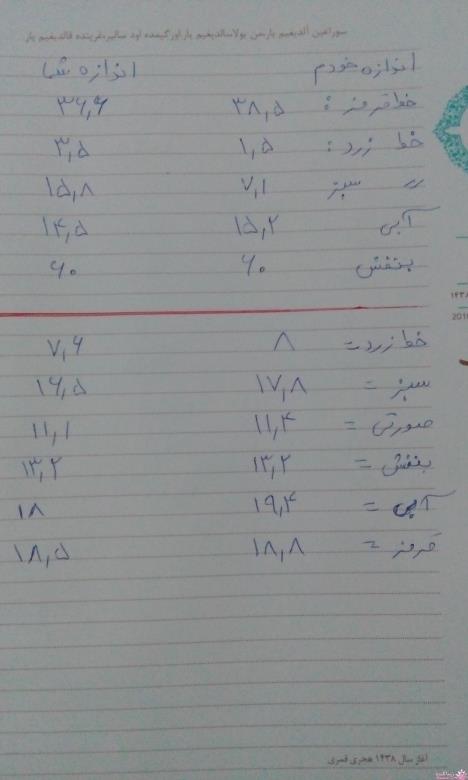 سوراغین آلدیغیم یار،من یولاسالدیغیم یار
اورگیمده اود سالیر،غربنده قالدیغیم یار
اندازه خودم اندازه شما
خط قرمز : ۳۸,۵ ۳۶,۶
خط زرد : ۱,۵ ۳,۵
رر سبز ۷,۱ ۱۵,۸
آبی ۱۵,۲ ۱۴,۵
بنفش ۶۰ ۶۰
۱۴۳۸
2016
خط زرد = ۸ ۷,۶
سبز = ۱۷,۸ ۱۶,۵
صورتی = ۱۱,۴ ۱۱,۱
بنفش = ۱۳,۲ ۱۳,۲
آبی = ۱۹,۴ ۱۸
قرمز = ۱۸,۸ ۱۸,۵
آغاز سال ۱۴۳۸ هجری قمری